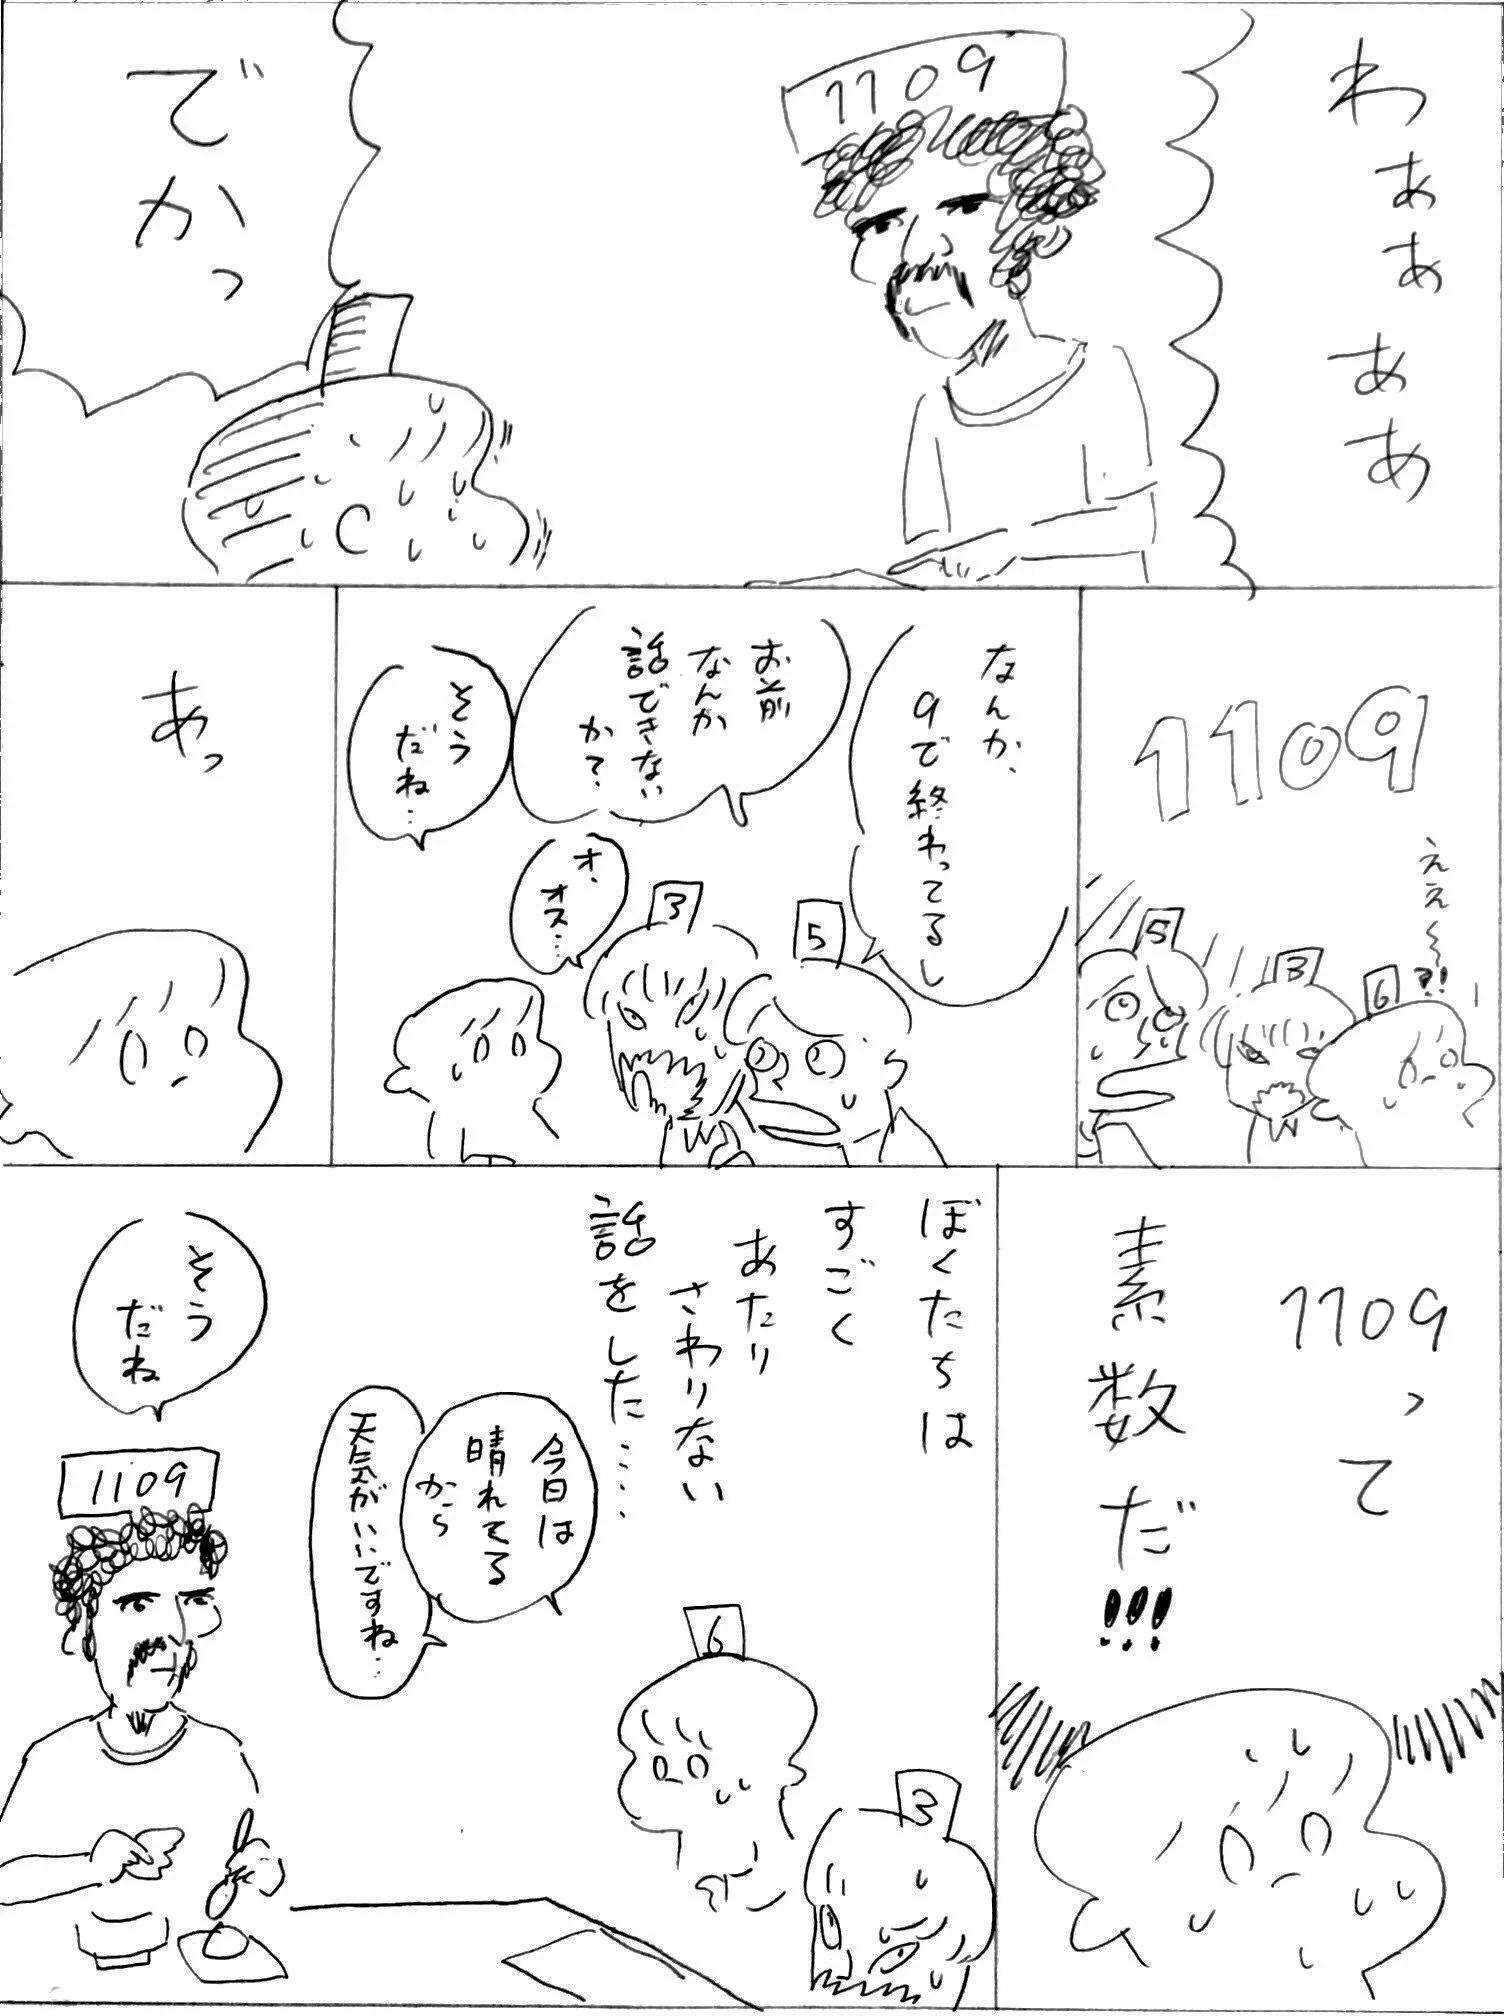 わぁぁぁぁ
1109
でかっ
1109
ええ〜?!
6
3
5
なんか、
9で終わってるし
お前
なんか
話できない
か?
オ、
オス…
そう
だね…
5
3
あっ
1109
って
素数だ!!!
ぼくたちは
すごく
あたり
さわりない
話をした……
今日は
晴れてる
から
天気がいいですね…
6
3
そう
だね
1109